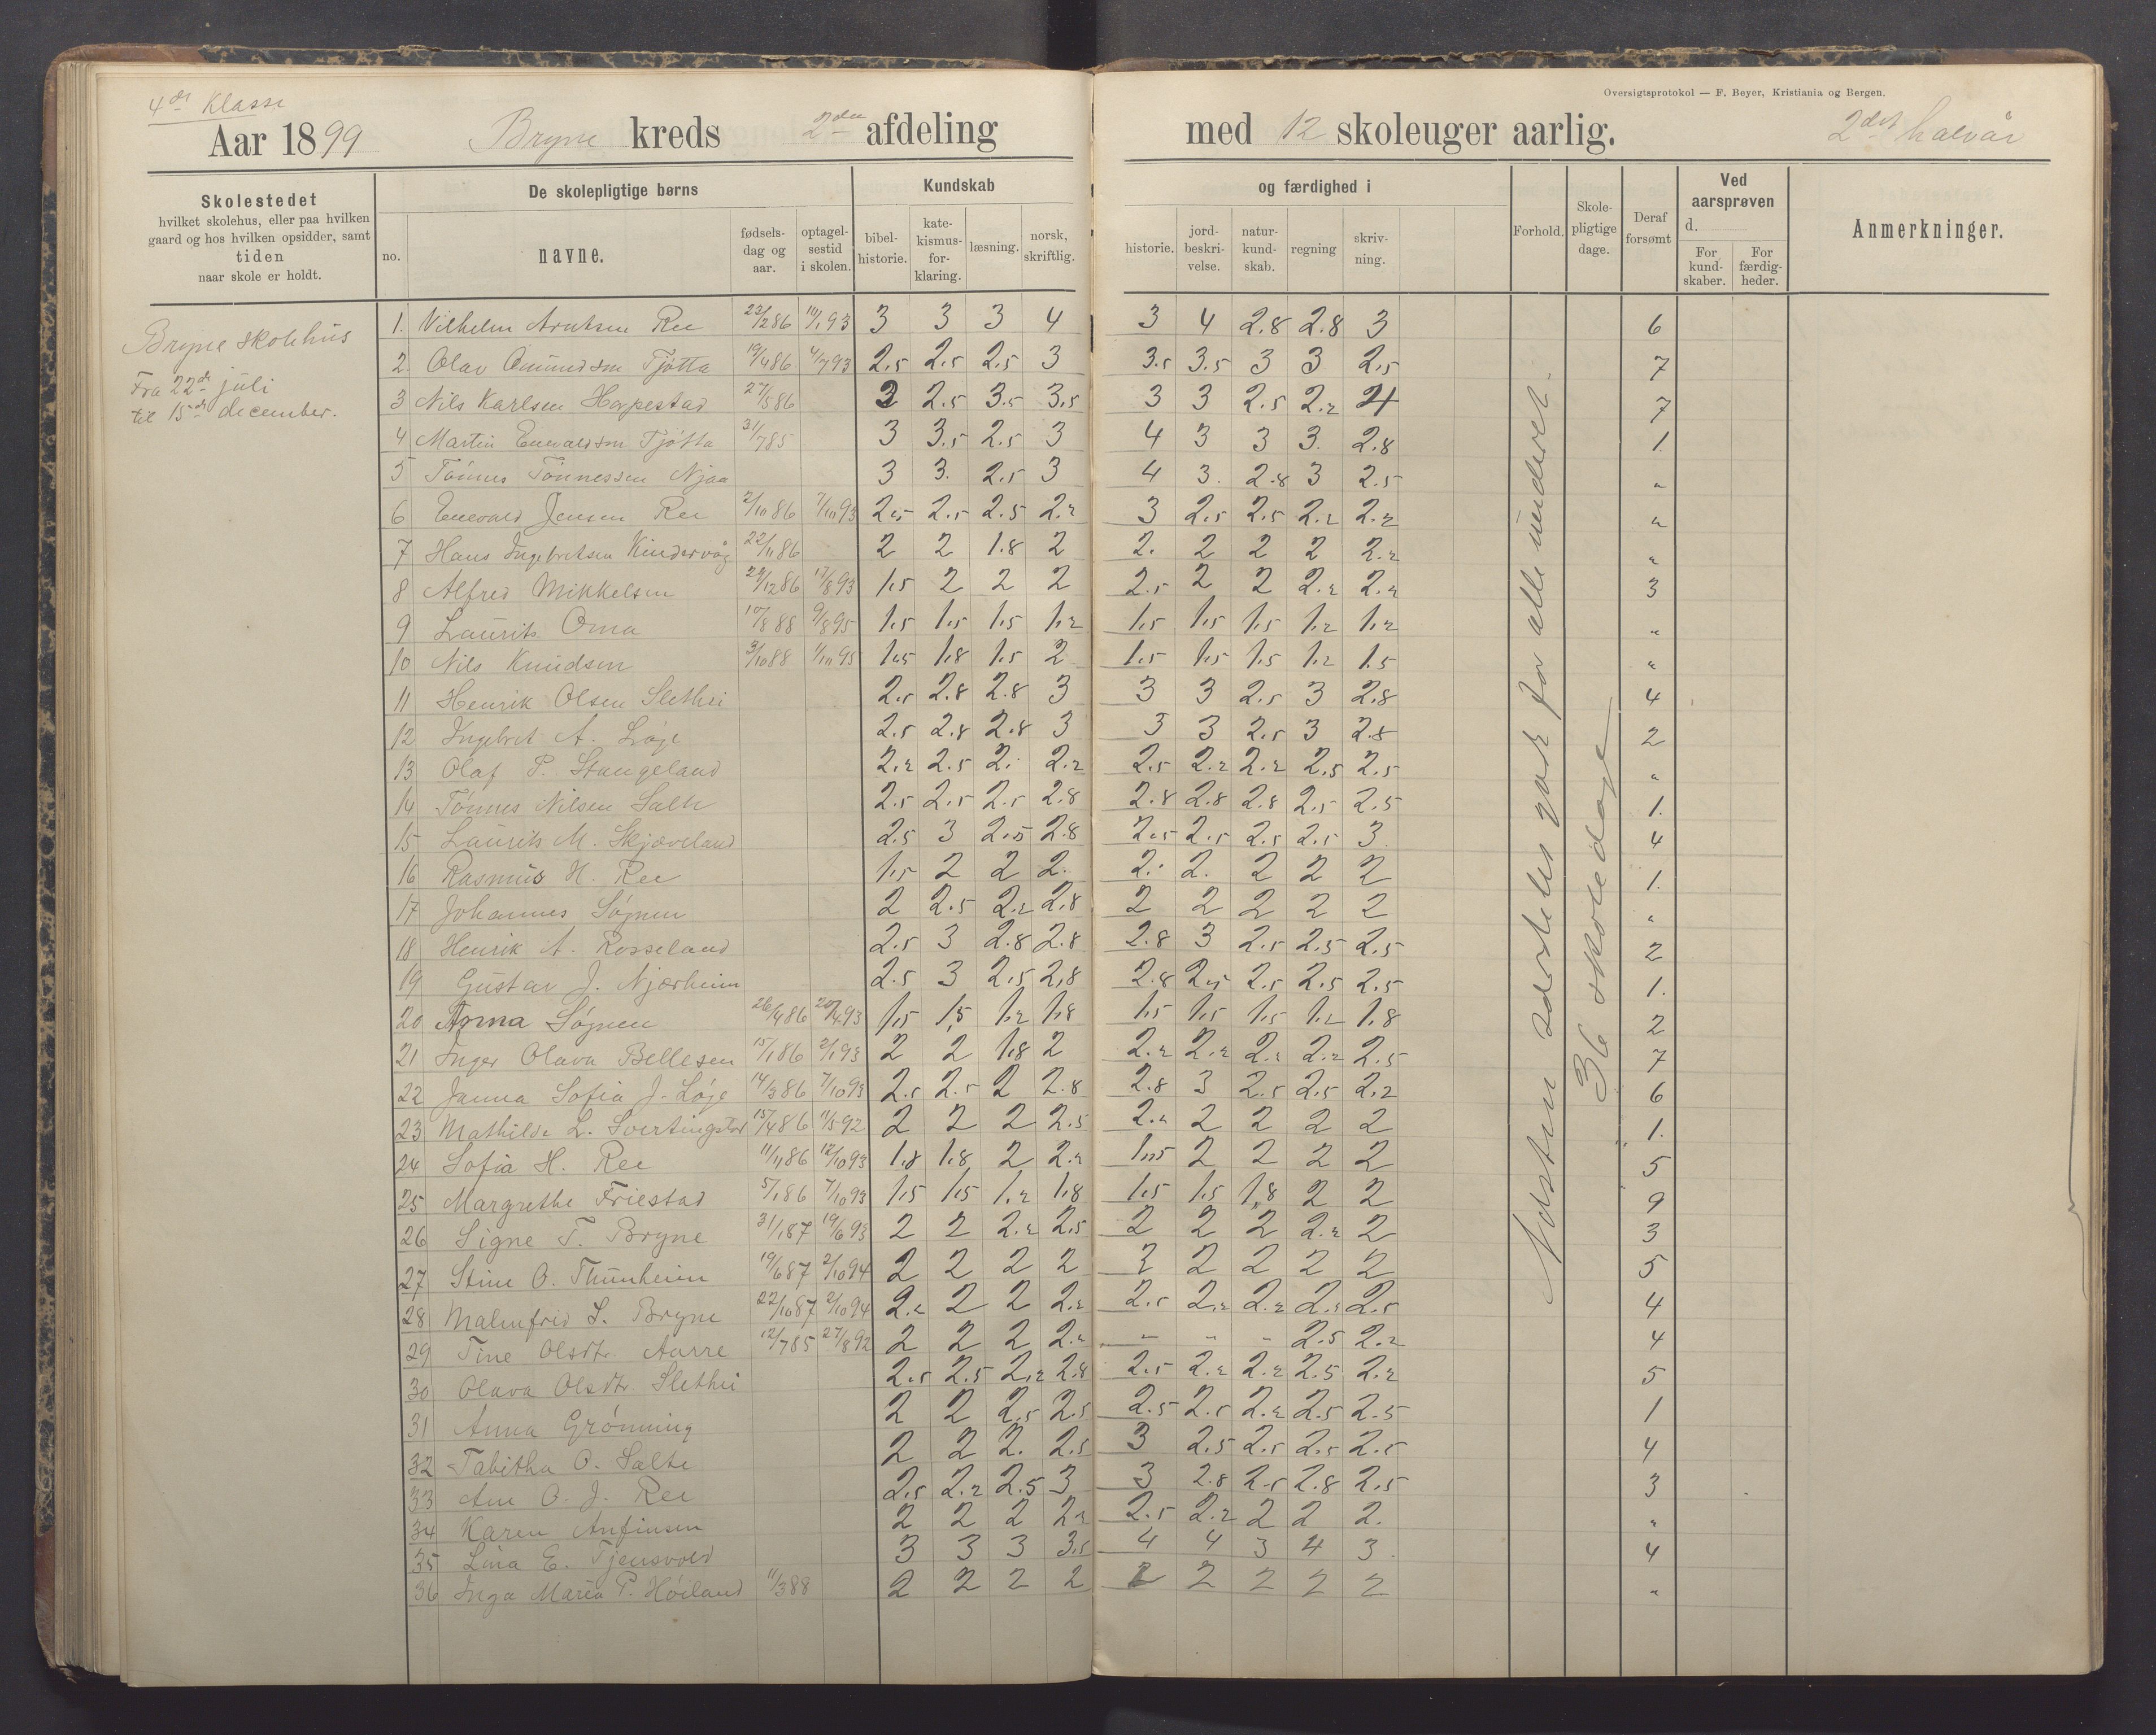 4de Klasse
Oversigtsprotokol — F. Beyer, Kristiania og Bergen.
Aar 1899 Bryne kreds 2den afdeling med 12 skoleuger aarlig. 2det halvår
Skolestedet
hvilket skolehus, eller paa hvilken
gaard og hos hvilken opsidder, samt
tiden
naar skole er holdt.
De skolepligtige børns
no.
navne.
fødsels-
dag og
aar.
optagel-
sestid
i skolen.
Kundskab
bibel-
historie.
kate-
kismus-
for-
klaring.
læsning.
norsk,
skriftlig.
og færdighed i
historie.
jord-
beskri-
velse.
natur-
kund-
skab.
regning
skriv-
ning.
Forhold.
Skole-
pligtige
dage.
Deraf
forsømt
Ved
aarsprøven
d.
For
kund-
skaber.
For
færdig-
heder.
Anmerkninger.
Bryne skolehus
Fra 22de juli
til 15de december.
1. Vilhelm Arntsen Ree 23/286 10/193 3 3 3 4 3 4 2.8 2.8 3 6
2. Olav Omundsen Tjøtta 19/486 4/793 2.5 2.5 2.5 3 3.5 3.5 3 3 2.5 7
3 Nils Karlsen Hapestad 27/586 3 2.5 3.5 3.5 3 3 2.5 2.2 4 7
4 Martin Enevaldsen Tjøtta 31/785 3 3.5 2.5 3 4 3 3 3. 2.8 1.
5 Tønnes Tønnessen Njaa 3 3. 2.5 3 4 3. 2.8 3 2.5 "
6 Enevald Jensen Ree 2/1086 7/1093 2.5 2.5 2.5 2.2 3 2.5 2.5 2.2 2.2 "
7 Hans Ingebretsen Kindervåg 22/1186 2 2 1.8 2 2. 2 2 2 2.2 "
8 Alfred Mikkelsen 29/1286 17/893 1.5 2 2 2 2.5 2 2 2.2 2.2 3
9 Laurits Oma 10/888 9/895 1.5 1.5 1.5 1.2 1.5 1.5 1.5 1.2 1.2 "
10 Nils Knudsen 3/1088 1/1095 1.5 1.8 1.5 2 1.5 1.5 1.5 1.2 1.5 "
11 Henrik Olsen Slethei 2.5 2.8 2.8 3 3 3 2.5 3 2.8 4
12 Ingebret A. Løge 2.5 2.8 2.8 3 3 3 2.5 3 2.8 2
13 Olaf P. Stangeland 2.2 2.5 2. 2.2 2.5 2.2 2.2 2.5 2.5 "
14 Tønnes Nilsen Salte 2.5 2.5 2.5 2.8 2.8 2.8 2.8 2.5 2.5 1.
15 Laurits M. Skjæveland 2.5 3 2.5 2.8 2.5 2.5 2.5 2.5 3. 4
16 Rasmus H. Ree 1.5 2 2 2. 2. 2. 2 2 2 1.
17 Johannes Søjnen 2 2.5 2.2 2.8 2 2 2 2 2 "
18 Henrik A. Rosseland 2.5 3 2.8 2.8 2.8 3 2.5 2.5 2.5 2
19 Gustav J. Njærheim 2.5 3 2.5 2.8 2.8 2.5 2.5 2.5 2.5 1.
20 Anna Søjnen 26/486 20/493 1.5 1.5 1.2 1.8 1.5 1.5 1.5 1.2 1.8 2
21 Inger Olava Bellesen 15/186 2/193 2 2 1.8 2 2.2 2.2 2.2 2.2 2.5 7
22 Janna Sofia J. Løge 14/386 7/1093 2.5 2.5 2 2.8 2.8 3 2.5 2.5 2.2 6
23 Mathilde L. Svertingstad 15/486 11/592 2 2 2 2.5 2.2 2 2 2 2 1.
24 Sofia H. Ree 11/1186 12/1093 1.8 1.8 2 2.2 1.5 2 2 2 2 5
25 Margrethe Friestad 5/186 7/1093 1.5 1.5 1.2 1.8 1.5 1.5 1.8 2 2 9
26 Signe T. Bryne 31/187 19/693 2 2 2.2 2.5 2 2 2 2.2 2 3
27 Stine O. Thunheim 19/687 2/1094 2 2 2 2 2 2 2 2 2 5
28 Malmfrid S. Bryne 22/1087 2/1094 2.2 2 2 2.2 2.5 2.2 2.2 2.2 2.5 4
29 Tine Olsdtr. Aarre 12/785 27/892 2 2 2 2.2 " " " 2.5 2.2 4
30 Olava Olsdtr Slethei 2.5 2.5 2.2 2.8 2.5 2.2 2.2 2.5 2.2 5
31 Anna Grønning 2 2 2.5 2.5 2.5 2.5 2.2 2.5 2.5 1
32 Tabitha O. Salte 2 2 2. 2.5 3 2.5 2.5 2.5 2.5 4
33 Ane O. J. Ree 2.5 2.2 2.5 3 3 2.8 2.5 2.8 2.5 3
34 Karen Anfinsen 2 2 2 2.2 2.5 2.2 2 2 2. "
35 Lina E. Tjensvold 3 3 3 3.5 4 4 3 4 3. 4
36 Inga Maria P. Høiland 11/388 2 2 2 2 2 2 2 2 2 "
Næsten særdeles godt for alle undevet.
36 skoledage